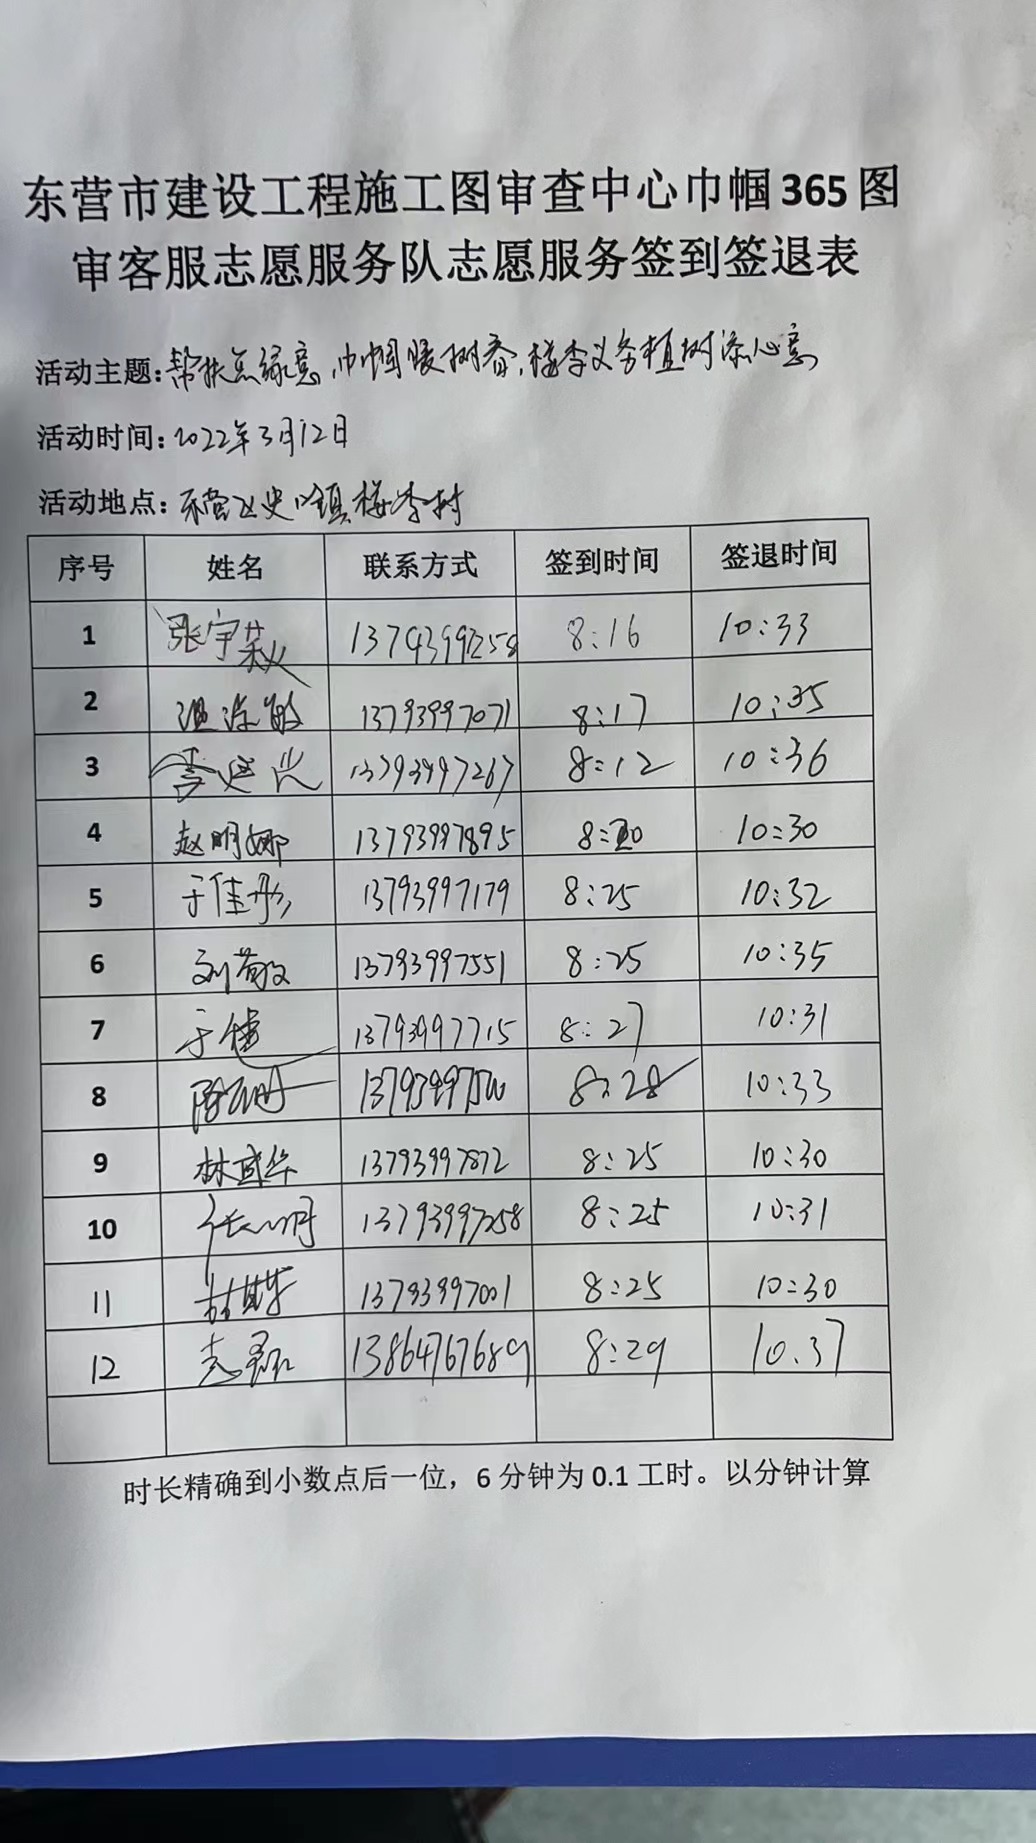 东营市建设工程施工图审查中心巾帼365图
审客服志愿服务队志愿服务签到签退表
活动主题:帮扶点绿意,巾帼暖树春,梅李义务植树添心意
活动时间:2022年3月12日
活动地点:东营区史口镇梅李村
序号 姓名 联系方式 签到时间 签退时间
1 张宇 13793997258 8:16 10:33
2 13793997071 8:17 10:35
3 13793997267 8:12 10:36
4 赵明娜 13793997895 8:20 10:30
5 于佳彤 13793997179 8:25 10:32
6 刘敬文 13793997551 8:25 10:35
7 于健 13793997715 8:27 10:31
8 8:28 10:33
9 林武华 13793997872 8:25 10:30
10 张 13793997258 8:25 10:31
11 13793997001 8:25 10:30
12 13864767689 8:29 10.37
时长精确到小数点后一位，6分钟为0.1工时。以分钟计算